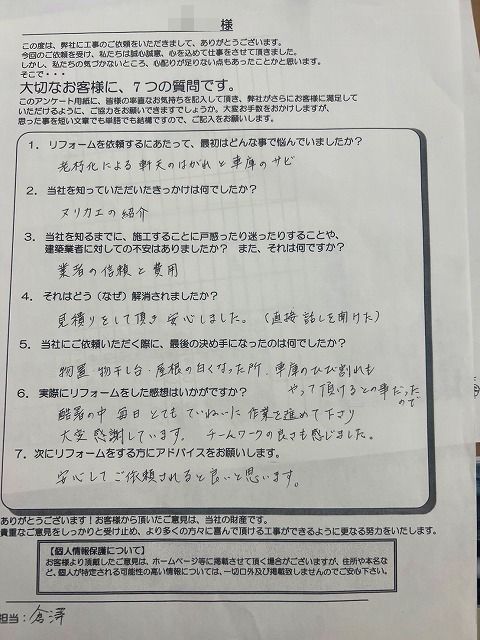 様
この度は、弊社に工事のご依頼をいただきまして、ありがとうございます。
今回のご依頼を受け、私たちは誠心誠意、心を込めて仕事をさせて頂きました。
しかし、私たちの気づかないところ、心配りが足りない点もあったことかと思います。
そこで・・・
大切なお客様に、７つの質問です。
このアンケート用紙に、皆様の率直なお気持ちを記入して頂き、弊社がさらにお客様に満足して
いただけるように、ご協力をお願いできますでしょうか。大変お手数をおかけしますが、
思った事を短い文章でも単語でも結構ですので、ご記入をお願いします。
１．リフォームを依頼するにあたって、最初はどんな事で悩んでいましたか？
老朽化による軒天のはがれと車庫のサビ
２．当社を知っていただいたきっかけは何でしたか？
ヌリカエの紹介
３．当社を知るまでに、施工することに戸惑ったり迷ったりすることや、
建築業者に対しての不安はありましたか？　また、それは何ですか？
業者の信頼と費用
４．それはどう（なぜ）解消されましたか？
見積りをして頂き安心しました。（直接話しを聞けた）
５．当社にご依頼いただく際に、最後の決め手になったのは何でしたか？
物置 物干し台・屋根の白くなった所、車庫のひび割れも
やって頂けるとの事だった
ので
６．実際にリフォームをした感想はいかがですか？
酷暑の中 毎日 とても ていねいに 作業を進めて下さり
大変 感謝しています。 チームワークの良さも感じました。
７．次にリフォームをする方にアドバイスをお願いします。
安心してご依頼されると良いと思います。
ありがとうございます！お客様から頂いたご意見は、当社の財産です。
貴重なご意見をしっかりと受け止め、より多くの方々に喜んで頂ける工事ができるように更なる努力をいたします。
【個人情報保護について】
お客様より頂戴したご意見は、ホームページ等に掲載させて頂く場合がございますが、住所や本名な
ど、個人が特定される可能性の高い情報については、一切口外及び掲載致しませんのでご安心下さい。
担当：倉澤